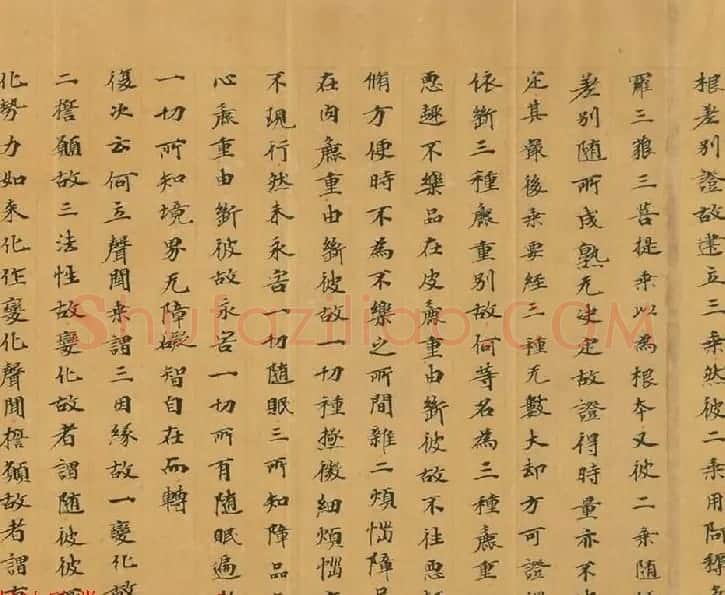 根差別證故建立三乘然彼二乘用阿耨
羅三藐三菩提乘以為根本又彼二乘隨
差別隨所成熟无決定故證得時量亦不
定其最後乘要經三種无數大劫方可證
依斷三種麁重別故何等名為三種麁重
悪趣不樂品在皮麁重由斷彼故不往悪
脩方便時不為不樂之所間雜二煩惱障品
在肉麁重由斷彼故一切種極微細煩惱
不現行然未永害一切隨眠三所知障品
心麁重由斷彼故永害一切所有隨眠遍
一切所知境界无障礙智自在而轉
復次云何立聲聞乘謂三因緣故一變化故
二誓願故三法性故變化故者謂隨彼彼
化勢力如來化作變化聲聞誓願故者謂
Shufaziliao.COM